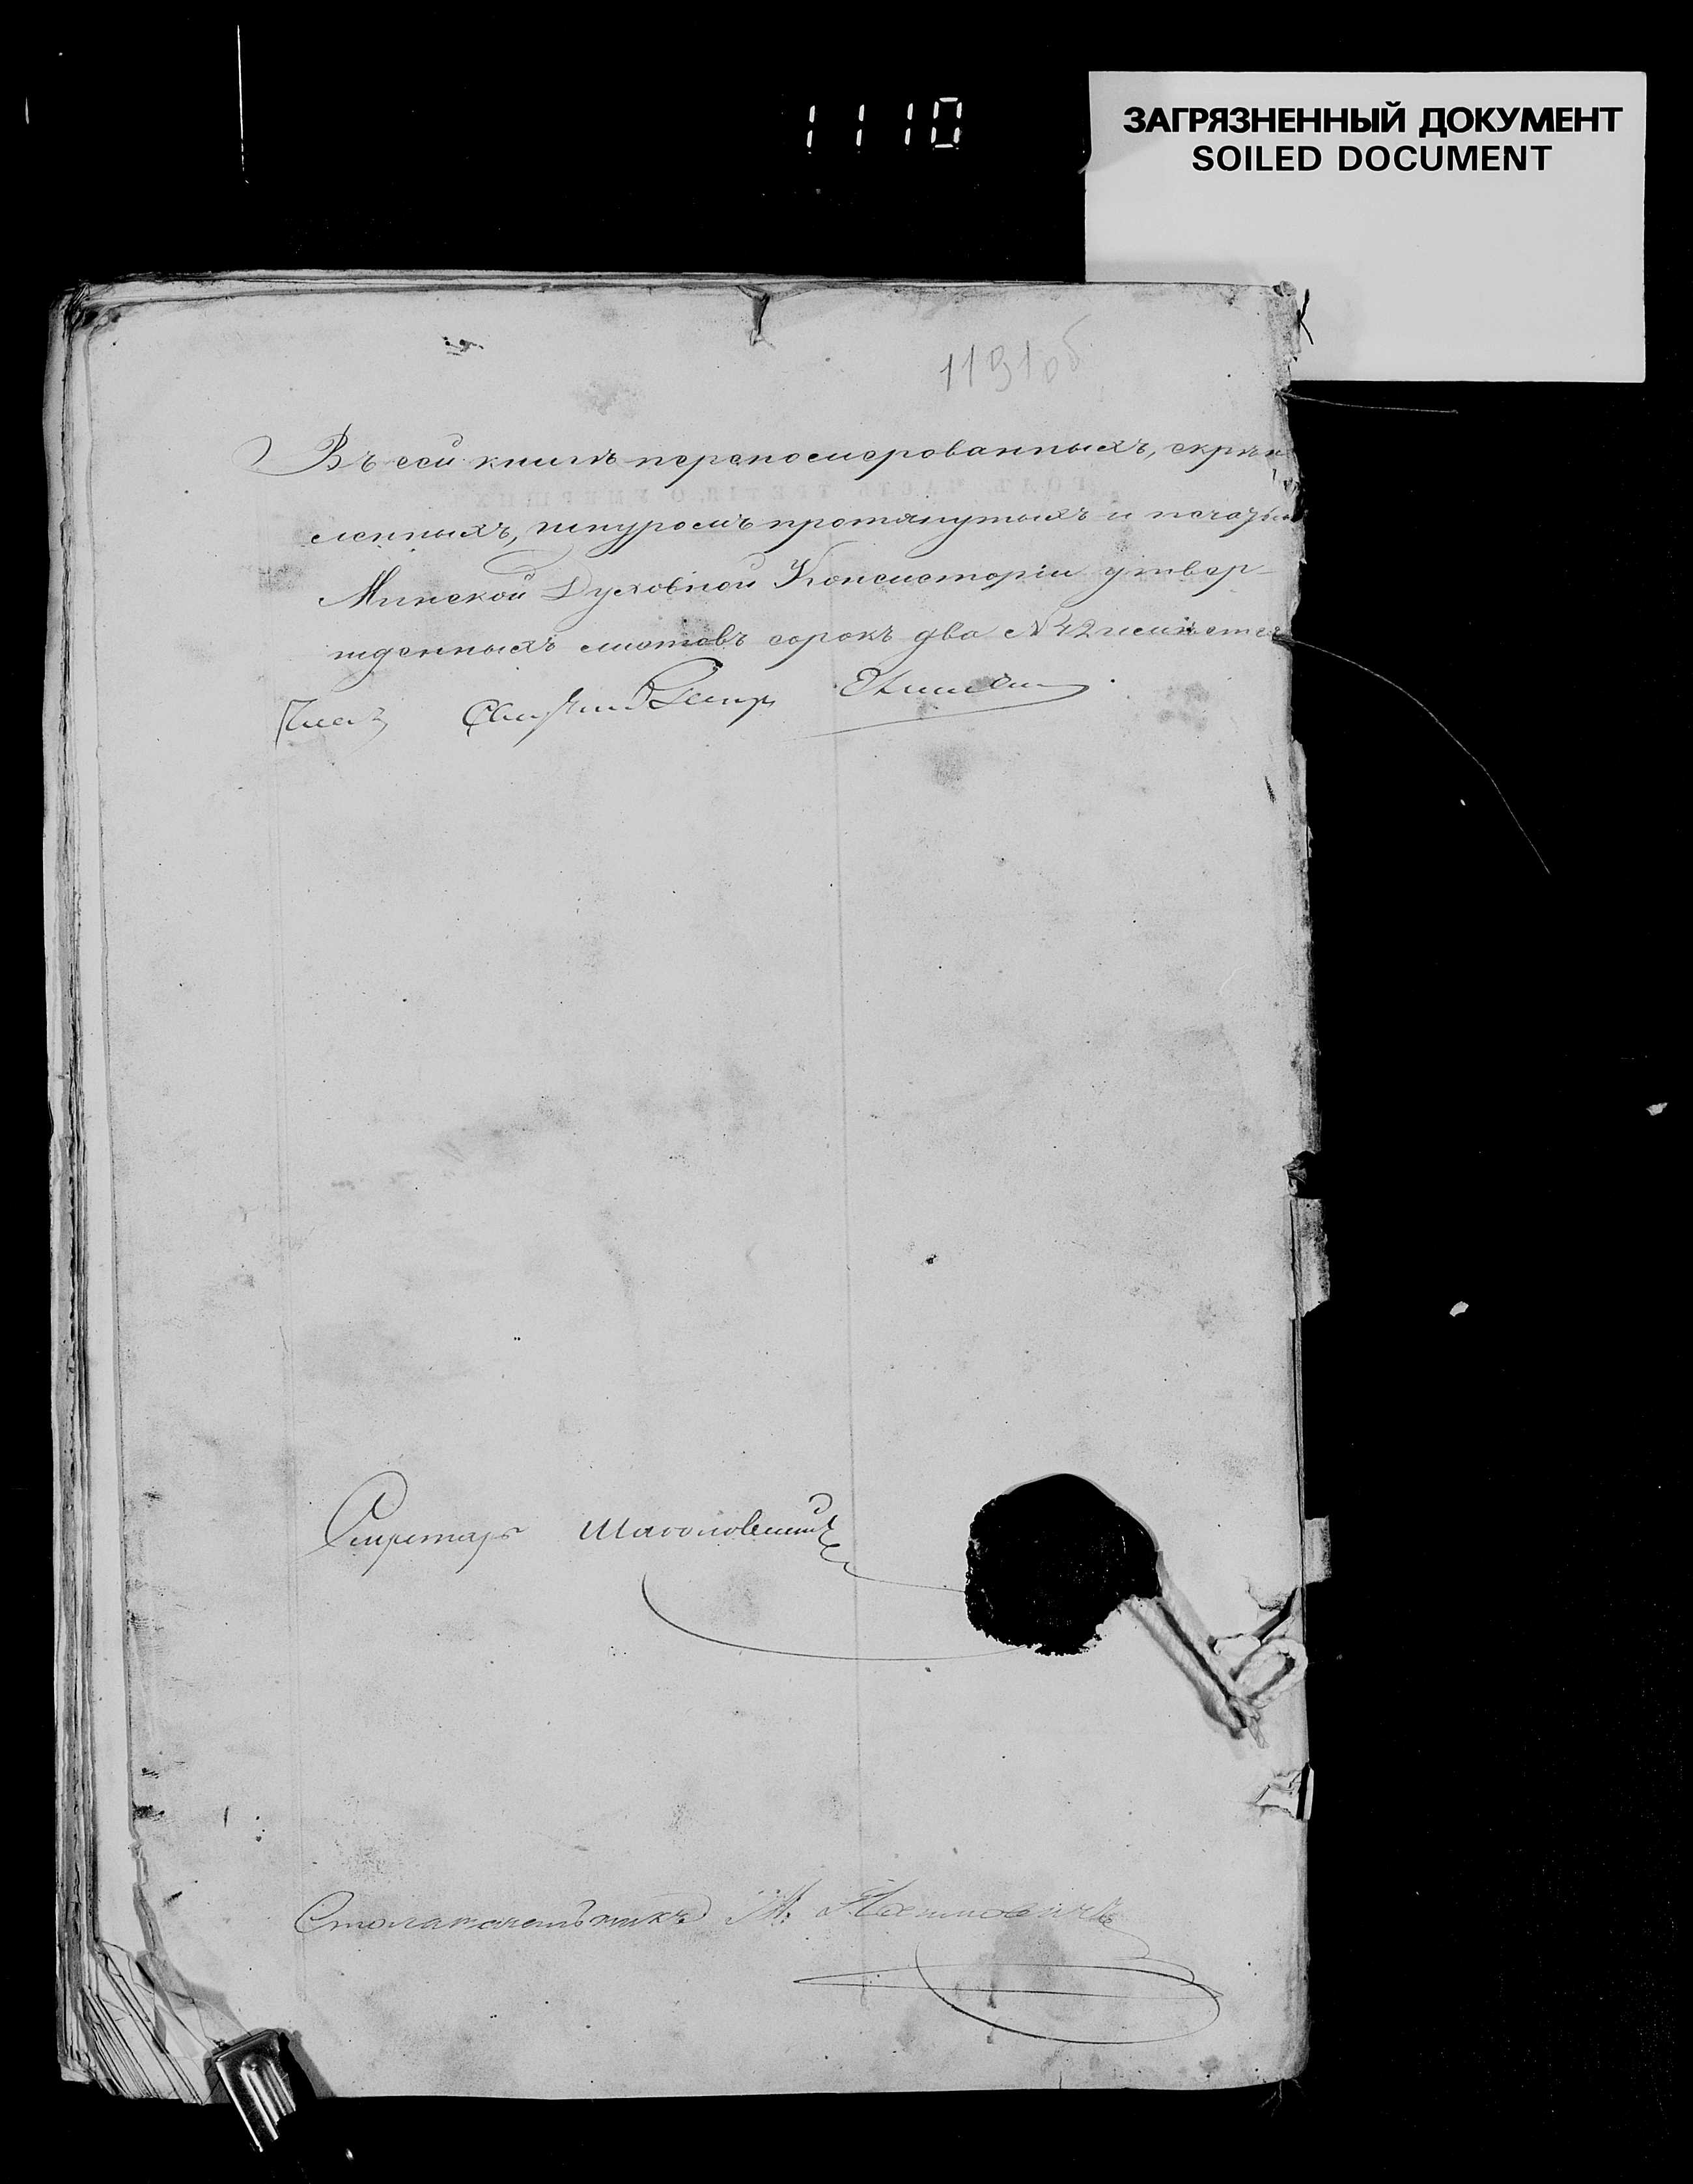 1110
ЗАГРЯЗНЕННЫЙ ДОКУМЕНТ
SOILED DOCUMENT
1191об
Въ сей книгѣ перенумерованныхъ, скрѣп
ленныхъ, шнуромъ протянутыхъ и печатью
Минской Духовной Консисторіи утвер-
жденныхъ листовъ сорокъ два №42
Членъ Священникъ
Секретарь
Столоначальникъ